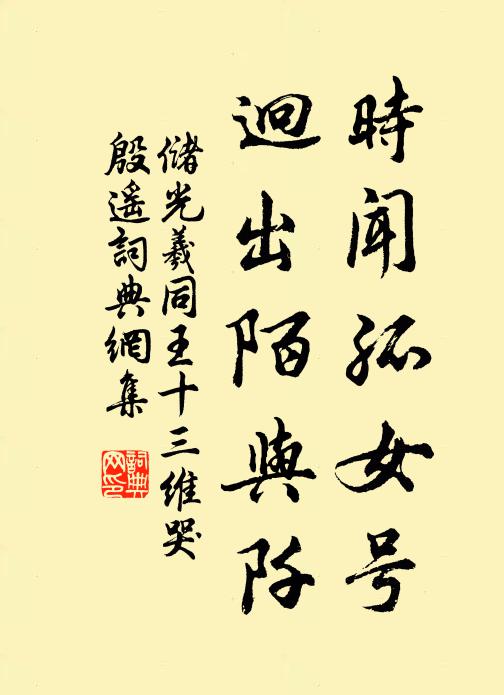 時聞孤女号
迥出陌與阡
儲光羲同王十三維哭
殷遥詞典網集
詞典网印